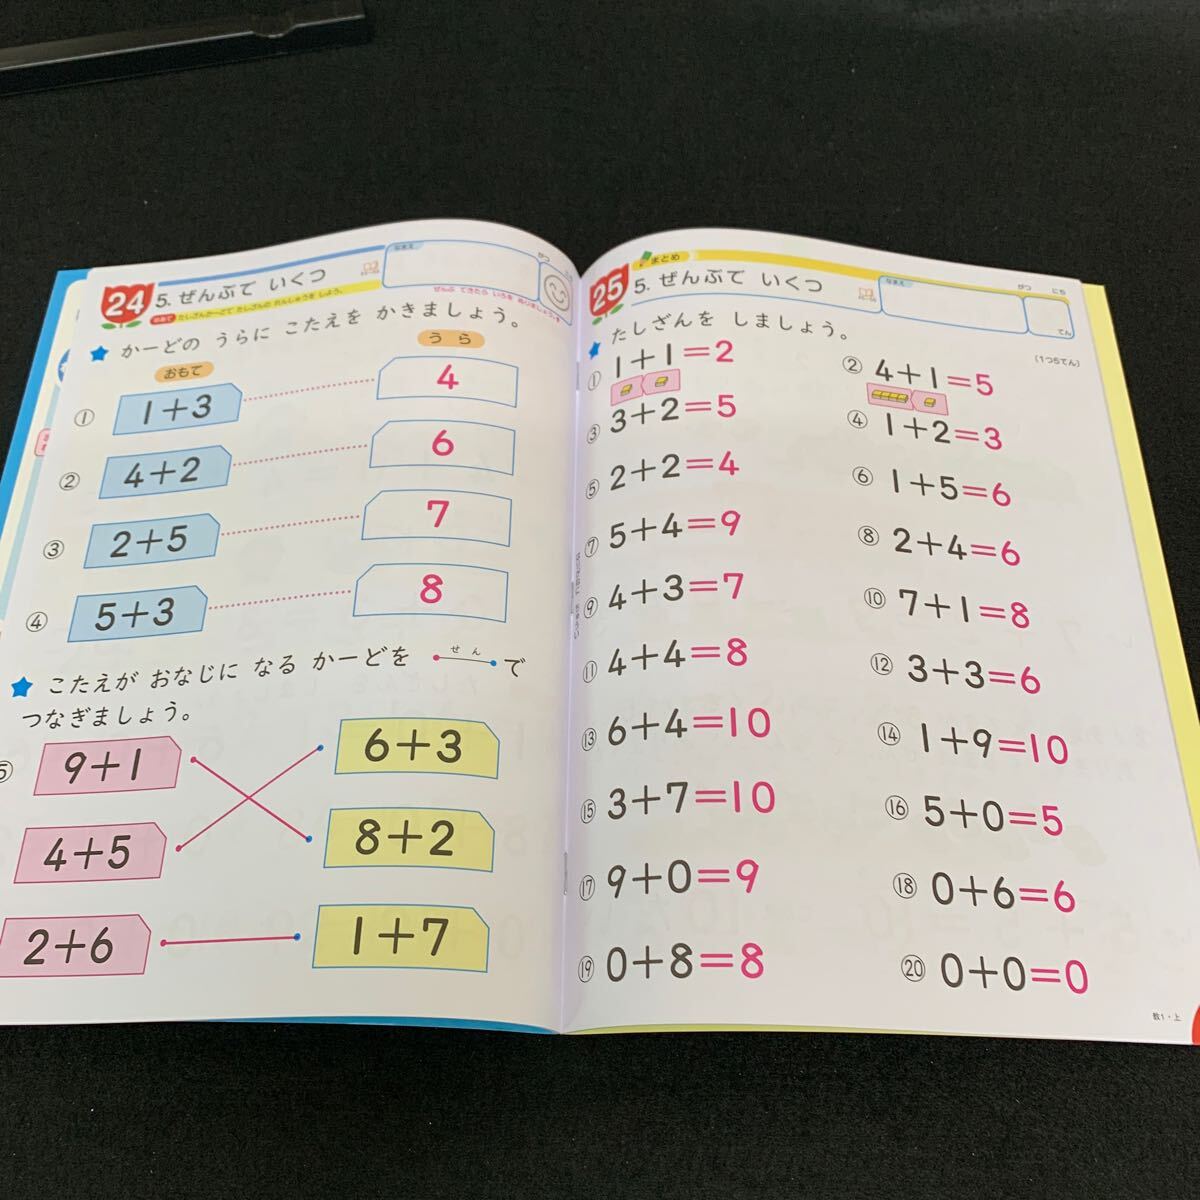 24
5. ぜんぶで いくつ
なまえ
がつ
にち
めあて たしざんかーどで たしざんの れんしゅうを しよう。
ぜんぶ できたら いろを ぬりましょう。
★ かーどの うらに こたえを かきましょう。
おもて
うら
① 1+3 4
② 4+2 6
③ 2+5 7
④ 5+3 8
★ こたえが おなじに なる かーどを
せん
で
つなぎましょう。
9+1 6+3
4+5 8+2
2+6 1+7
25
まとめ
5. ぜんぶで いくつ
なまえ
がつ
にち
てん
★ たしざんを しましょう。
(1つ5てん)
① 1+1=2
② 4+1=5
③ 3+2=5
④ 1+2=3
⑤ 2+2=4
⑥ 1+5=6
⑦ 5+4=9
⑧ 2+4=6
⑨ 4+3=7
⑩ 7+1=8
⑪ 4+4=8
⑫ 3+3=6
⑬ 6+4=10
⑭ 1+9=10
⑮ 3+7=10
⑯ 5+0=5
⑰ 9+0=9
⑱ 0+6=6
⑲ 0+8=8
⑳ 0+0=0
数1・上